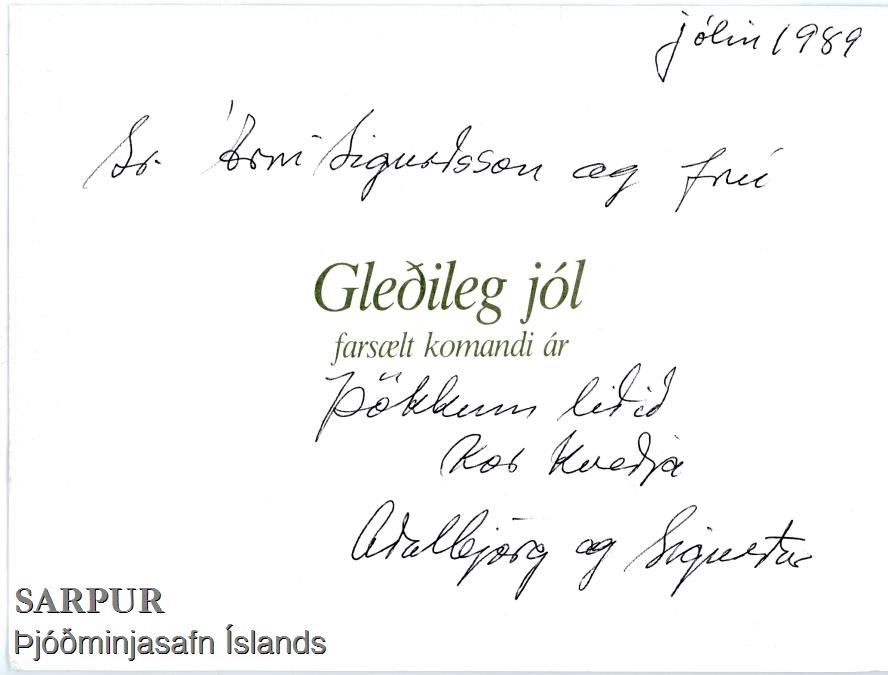 jólin 1989
Sr. Árni Sigurðsson og frú
Gleðileg jól
farsælt komandi ár
Þökkum liðið
Kær kveðja
Aðalbjörg og Sigurður
SARPUR
Þjóðminjasafn Íslands